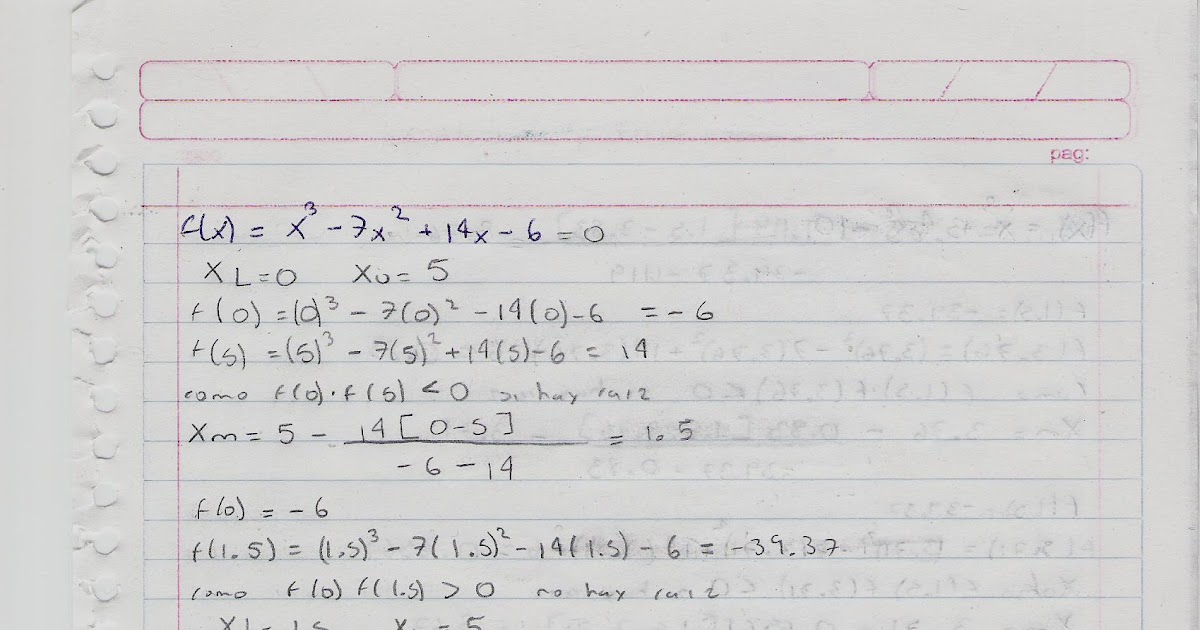 pag:
f(x) = x³ - 7x² + 14x - 6 = 0
XL = 0 XU = 5
f(0) = (0)³ - 7(0)² - 14(0) - 6 = -6
f(5) = (5)³ - 7(5)² + 14(5) - 6 = 14
como f(0)·f(5) < 0 si hay raiz
Xm = 5 - 14[0-5] / -6 - 14 = 1.5
f(0) = -6
f(1.5) = (1.5)³ - 7(1.5)² - 14(1.5) - 6 = -39.37
como f(0) f(1.5) > 0 no hay raiz
XL = 1.5 X = 5